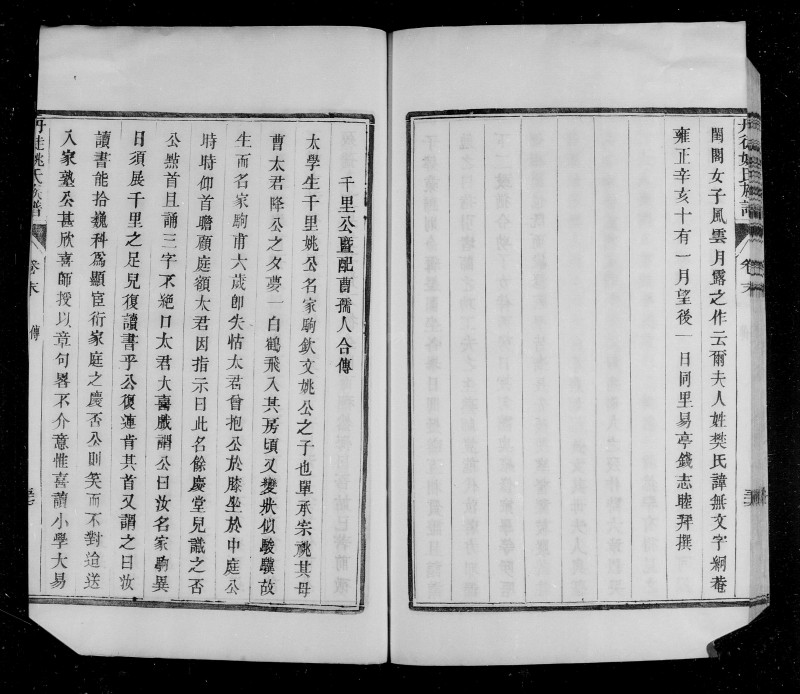 丹徒姚氏族譜
卷末
閨閣女子風雲月露之作云爾夫人姓樊氏諱無文字綗菴
雍正辛亥十有一月望後一日同里易亭錢志睦拜撰
千里公暨配曹孺人合傳
太學生千里姚公名家駒欽文姚公之子也單承宗祧其母
曹太君降公之夕夢一白鶴飛入其房頃又變狀似駿驥故
生而名家駒甫六歲卽失怙太君曾抱公於膝坐於中庭公
時時仰首瞻顧庭額太君因指示曰此名餘慶堂兒識之否
公㸃首且誦三字不絕口太君大喜戲謂公曰汝名家駒異
日須展千里之足兒復讀書乎公復蓮肯其首又謂之曰汝
讀書能拾巍科爲顯宦衍家庭之慶否公則笑而不對迨送
入家塾公甚欣喜師授以章句畧不介意惟喜讀小學大易
丹徒姚氏族譜
卷末
傳